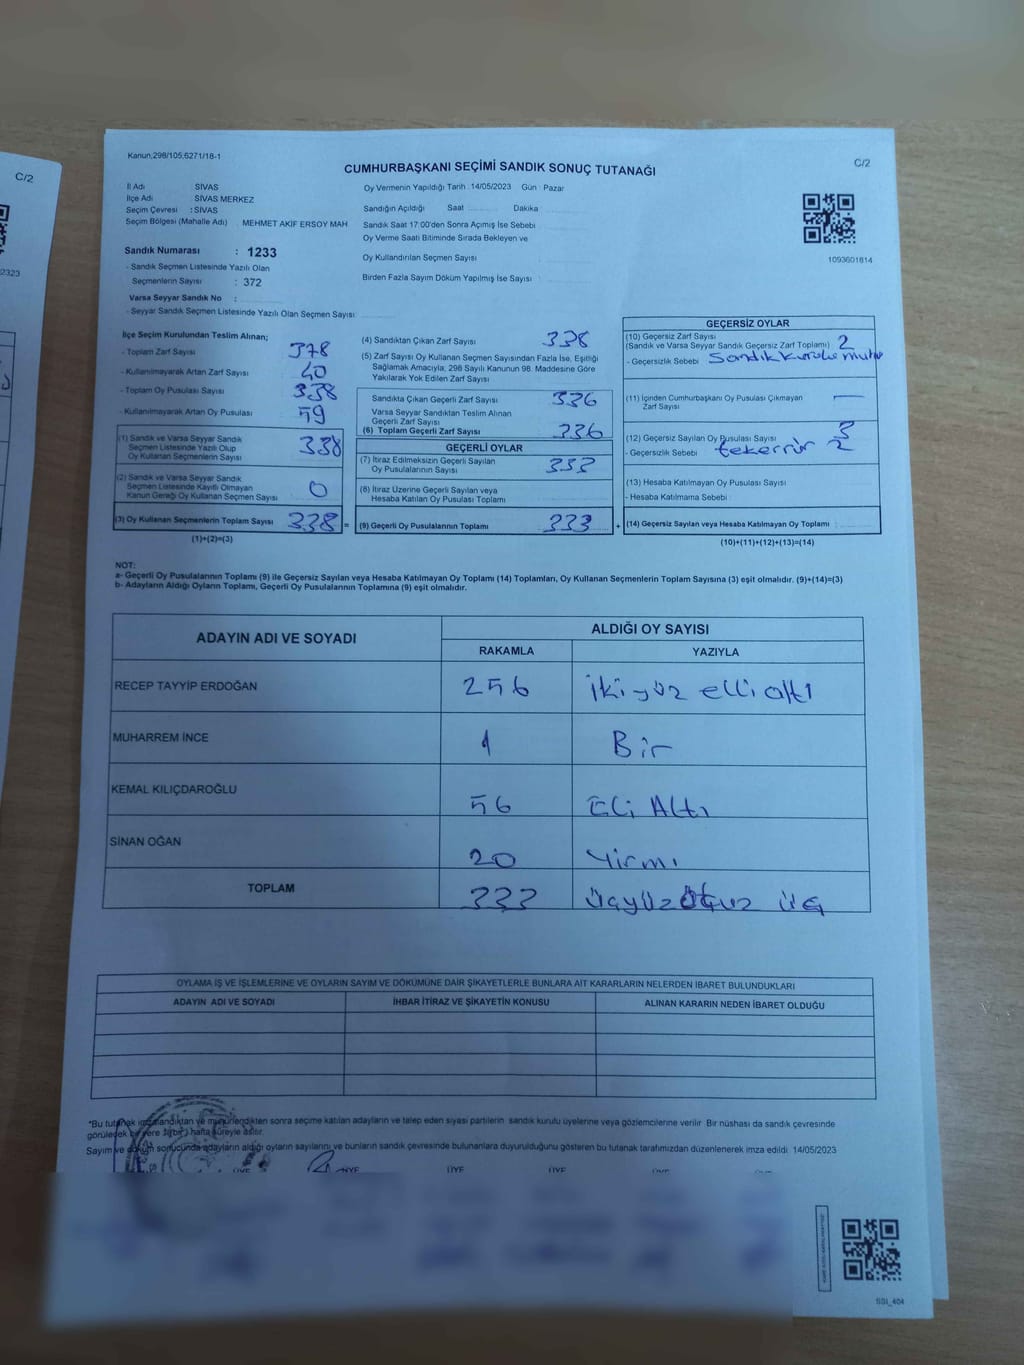 Kanun,298/105;6271/18-1
C/2
C/2
CUMHURBAŞKANI SEÇİMİ SANDIK SONUÇ TUTANAĞI
İl Adı SİVAS
İlçe Adı SİVAS MERKEZ
Seçim Çevresi : SİVAS
Seçim Bölgesi (Mahalle Adı) MEHMET AKİF ERSOY MAH
Sandık Numarası : 1233
- Sandık Seçmen Listesinde Yazılı Olan
Seçmenlerin Sayısı : 372
Varsa Seyyar Sandık No :
- Seyyar Sandık Seçmen Listesinde Yazılı Olan Seçmen Sayısı
Oy Vermenin Yapıldığı Tarih 14/05/2023 Gün Pazar
Sandığın Açıldığı Saat Dakika
Sandık Saat 17:00'den Sonra Açımış İse Sebebi
Oy Verme Saati Bitiminde Sırada Bekleyen ve
Oy Kullandırılan Seçmen Sayısı
Birden Fazla Sayım Döküm Yapılmış İse Sayısı
1093601814
2323
İlçe Seçim Kurulundan Teslim Alınan;
- Toplam Zarf Sayısı 378
- Kullanılmayarak Artan Zarf Sayısı 40
- Toplam Oy Pusulası Sayısı 338
- Kullanılmayarak Artan Oy Pusulası 59
(1) Sandık ve Varsa Seyyar Sandık
Seçmen Listesinde Yazılı Olup
Oy Kullanan Seçmenlerin Sayısı 338
(2) Sandık ve Varsa Seyyar Sandık
Seçmen Listesinde Kayıtlı Olmayan
Kanun Gereği Oy Kullanan Seçmen Sayısı 0
(3) Oy Kullanan Seçmenlerin Toplam Sayısı 338 =
(1)+(2)=(3)
(4) Sandıktan Çıkan Zarf Sayısı 338
(5) Zarf Sayısı Oy Kullanan Seçmen Sayısından Fazla İse, Eşitliği
Sağlamak Amacıyla, 298 Sayılı Kanunun 98. Maddesine Göre
Yakılarak Yok Edilen Zarf Sayısı
Sandıkta Çıkan Geçerli Zarf Sayısı 336
Varsa Seyyar Sandıktan Teslim Alınan
Geçerli Zarf Sayısı
(6) Toplam Geçerli Zarf Sayısı 336
GEÇERLİ OYLAR
(7) İtiraz Edilmeksizin Geçerli Sayılan
Oy Pusulalarının Sayısı 333
(8) İtiraz Üzerine Geçerli Sayılan veya
Hesaba Katılan Oy Pusulası Toplamı
(9) Geçerli Oy Pusulalarının Toplamı 333 +
GEÇERSİZ OYLAR
(10) Geçersiz Zarf Sayısı
(Sandık ve Varsa Seyyar Sandık Geçersiz Zarf Toplamı) 2
- Geçersizlik Sebebi Sandık kurulu
(11) İçinden Cumhurbaşkanı Oy Pusulası Çıkmayan
Zarf Sayısı —
(12) Geçersiz Sayılan Oy Pusulası Sayısı 3
- Geçersizlik Sebebi tekerrür 2
(13) Hesaba Katılmayan Oy Pusulası Sayısı
- Hesaba Katılmama Sebebi
(14) Geçersiz Sayılan veya Hesaba Katılmayan Oy Toplamı
(10)+(11)+(12)+(13)=(14)
NOT:
a- Geçerli Oy Pusulalarının Toplamı (9) ile Geçersiz Sayılan veya Hesaba Katılmayan Oy Toplamı (14) Toplamları, Oy Kullanan Seçmenlerin Toplam Sayısına (3) eşit olmalıdır. (9)+(14)=(3)
b- Adayların Aldığı Oyların Toplamı, Geçerli Oy Pusulalarının Toplamına (9) eşit olmalıdır.
ADAYIN ADI VE SOYADI ALDIĞI OY SAYISI
RAKAMLA YAZIYLA
RECEP TAYYİP ERDOĞAN 256 ikiyüz elli altı
MUHARREM İNCE 1 Bir
KEMAL KILIÇDAROĞLU 56 Elli Altı
SİNAN OĞAN 20 Yirmi
TOPLAM 333 üçyüzotuz üç
OYLAMA İŞ VE İŞLEMLERİNE VE OYLARIN SAYIM VE DÖKÜMÜNE DAİR ŞİKAYETLERLE BUNLARA AİT KARARLARIN NELERDEN İBARET BULUNDUKLARI
ADAYIN ADI VE SOYADI İHBAR İTİRAZ VE ŞİKAYETİN KONUSU ALINAN KARARIN NEDEN İBARET OLDUĞU
*Bu tutanak imzalandıktan ve mühürlendikten sonra seçime katılan adayların ve talep eden siyasi partilerin sandık kurulu üyelerine veya gözlemcilerine verilir Bir nüshası da sandık çevresinde
görülecek bir yere 1(bir) hafta süreyle asılır.
Sayım ve döküm sonucunda adayların aldığı oyların sayılarını ve bunların sandık çevresinde bulunanlara duyurulduğunu gösteren bu tutanak tarafımızdan düzenlenerek imza edildi. 14/05/2023
ÜYE ÜYE ÜYE
SSI_404